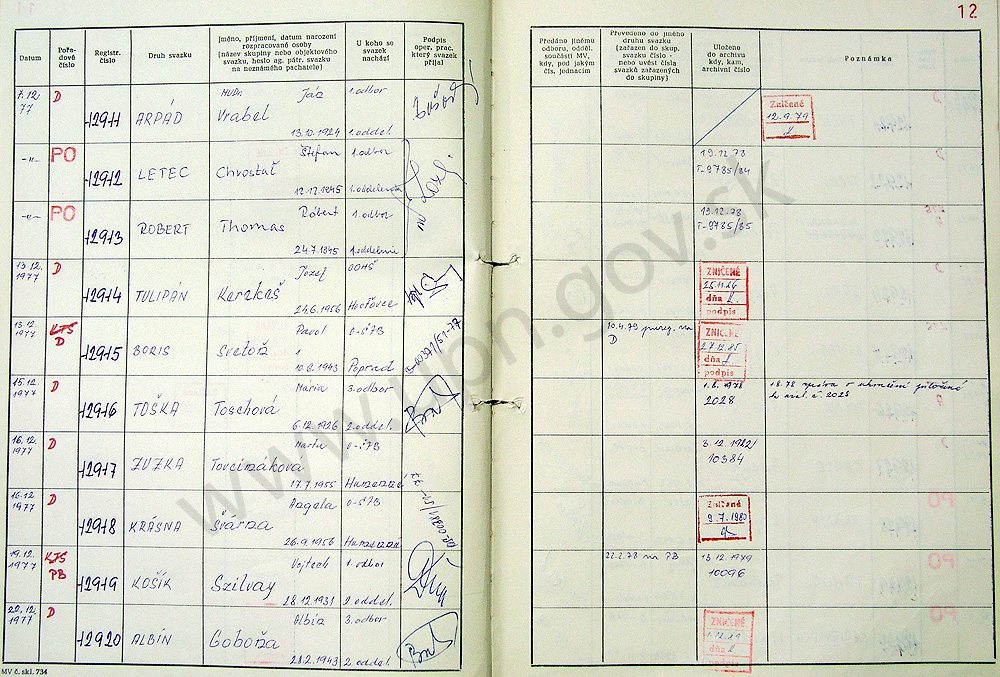 12
Datum
Pořa-
dové
číslo
Registr.
číslo
Druh svazku
Jméno, příjmení, datum narození
rozpracované osoby
(název skupiny nebo objektového
svazku, heslo ag. pátr. svazku
na neznámého pachatele)
U koho se
svazek
nachází
Podpis
oper. prac.
který svazek
přijal
Předáno jinému
odboru, odděl.
součásti MV,
kdy, pod jakým
čís. jednacím
Převedeno do jiného
druhu svazku
(zařazen do skup.
svazku číslo -
nebo uvést čísla
svazků zařazených
do skupiny)
Uloženo
do archivu
kdy, kam,
archivní číslo
Poznámka
7.12. 77 D 12911 ARPÁD MUDr. Ján Vrabel 13.10.1924 1. odbor 1. oddel.
Zničené 12.9.79
-"- PO 12912 LETEC Štefan Chvostaľ 12.12.1945 1. odbor 1. oddelenie
19.12.78
T-9785/84
-"- PO 12913 ROBERT Róbert Thomas 24.7.1945 1. odbor 1. oddelenie
19.12.78
T-9785/85
13.12. 1977 D 12914 TULIPÁN Jozef Kerekeš 24.6.1956 OOHŠ
ZNIČENÉ
dňa
podpis
13.12. 1977 KTS D 12915 BORIS Pavol 10.6.1943 O-ŠTB Poprad
10.4.79 prereg. na D
ZNIČENÉ
27.12.85
dňa
podpis
15.12. 1977 D 12916 TOŠKA Mária Toschová 6.12.1926 3. odbor 2. oddel.
1.8.1978
2028
16.12. 1977 D 12917 ZUZKA Marta 17.7.1955 O-ŠTB Humenné
8.12.1982/
10384
16.12. 1977 D 12918 KRÁSNA Angela 26.9.1956 O-ŠTB Humenné
Zničené
9.7.1980
19.12. 1977 KTS PB 12919 KOŠÍK Vojtech Szilvay 28.12.1931 1. odbor 2. oddel.
22.2.78 na PB
13.12.1979
10096
22.12. 1977 D 12920 ALBÍN Albín Goboňa 21.2.1943 3. odbor 2. oddel.
ZNIČENÉ
dňa
podpis
MV č. skl. 734
www.upn.gov.sk